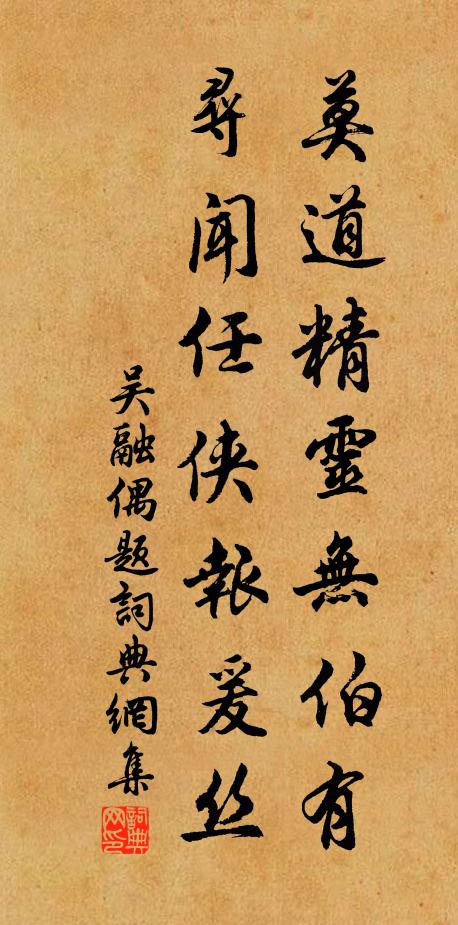 莫道精靈無伯有
尋聞任俠報爰丝
吴融偶题詞典網集
詞典網印